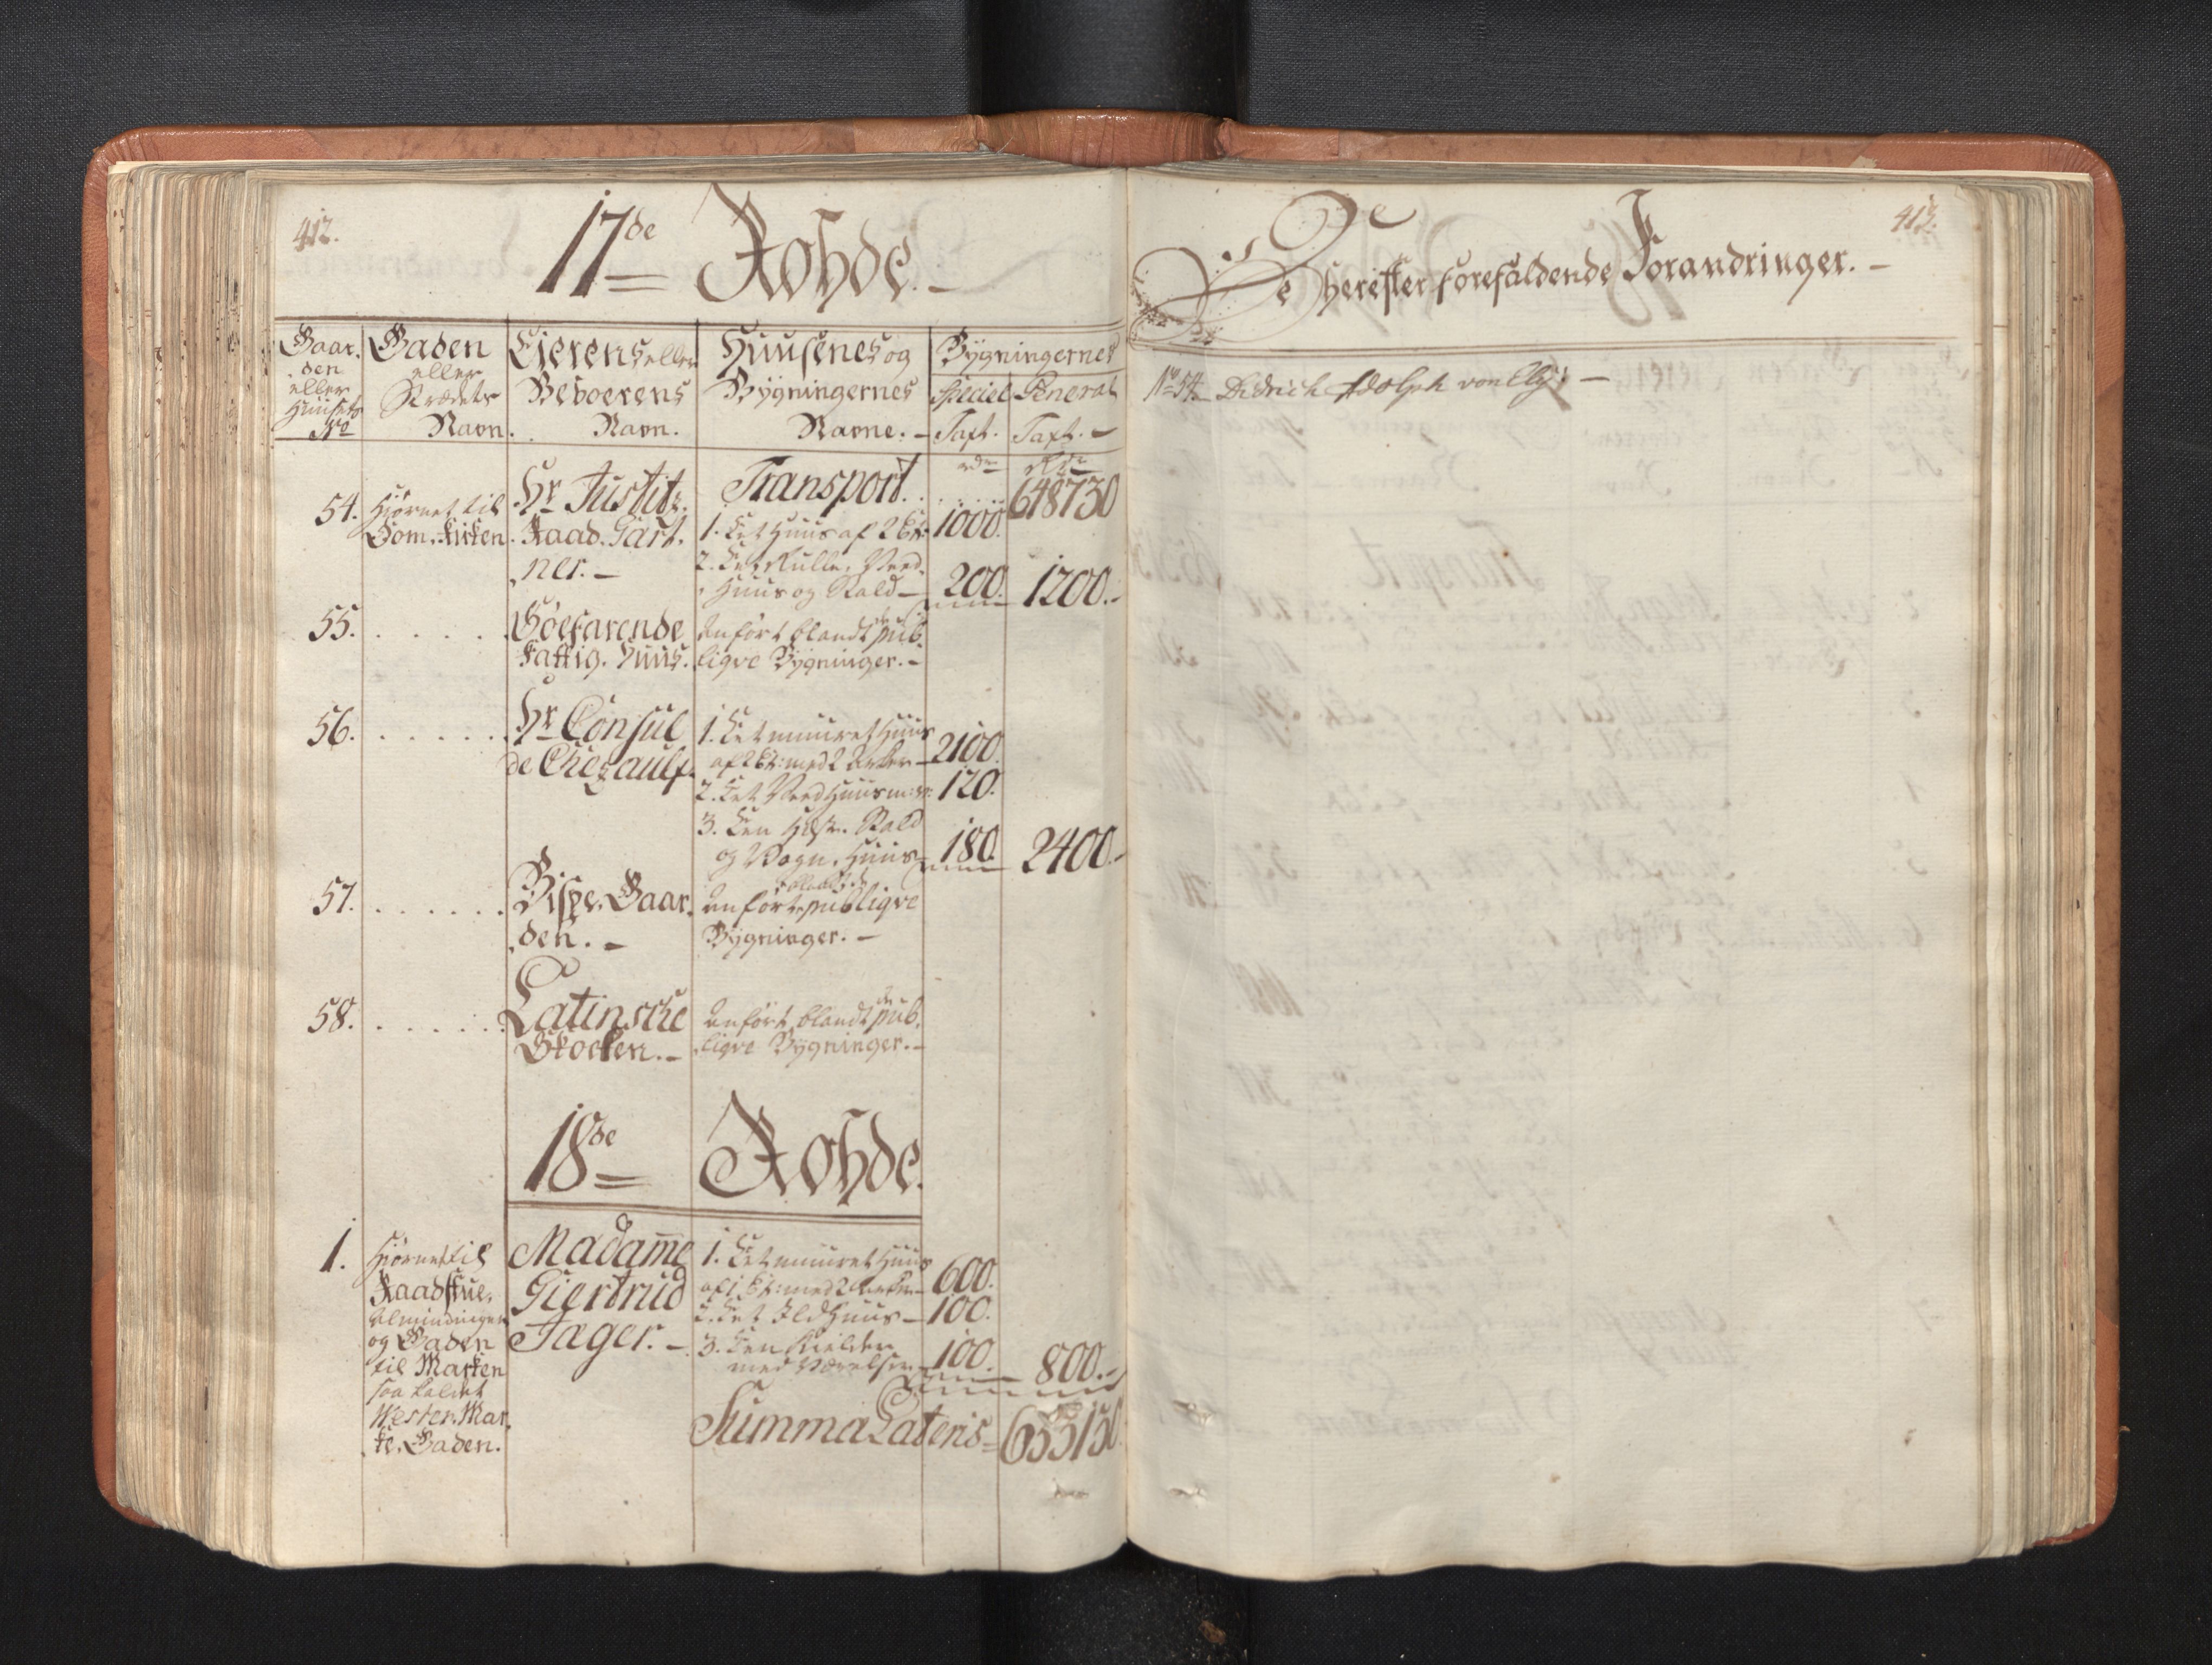 412.
17de Rohde.
Gaar-
den
eller
Huusets
No
Gaden
eller
Strædets
Navn.
Eierens eller
Beboerens
Navn.
Huusenes og
Bygningernes
Navne.
Bygningernes
Speciel Taxt.
General Taxt.
rdr Rdr
Transport. 648730
54. Hiørnet til
Dom-Kirken.
Hr Justitz-
Raad Gärt-
ner.
1. Et Huus af 2 Et: 1000.
2. Et Rulle, Veed-
Huus og Stald 200. 1200.
55. Søefarende
Fattig-Huus.
Anført blandt de pub-
liqve Bygninger.
56. Hr Consul
de Chezaulx.
1. Et muuret Huus
af 2 Et: med 2 Arker 2100.
2. Et Veed Huus 120.
3. En Hæste-Stald
og Vogn-Huus 180. 2400.
57. Bispe-Gaar-
den.
Anført blandt de publiqve
Bygninger.
58. Latinsche
Skolen.
Anført blandt de pub-
liqve Bygninger.
18de Rohde.
1. Hiørnet til
Raadstue-
Almindingen
og Gaden
til Marken
saa kaldet
Wester-Mar-
ke-Gaden.
Madame
Giertrud
Jæger.
1. Et muuret Huus
af 1 Et: med 2 Arker 600.
2. Et Ildhuus 100.
3. En Kielder
med Værelser 100. 800.
Summa Lateris 653130.
413.
De herefter forefaldende Forandringer.
No 54. Didrich Adolph von Elg: